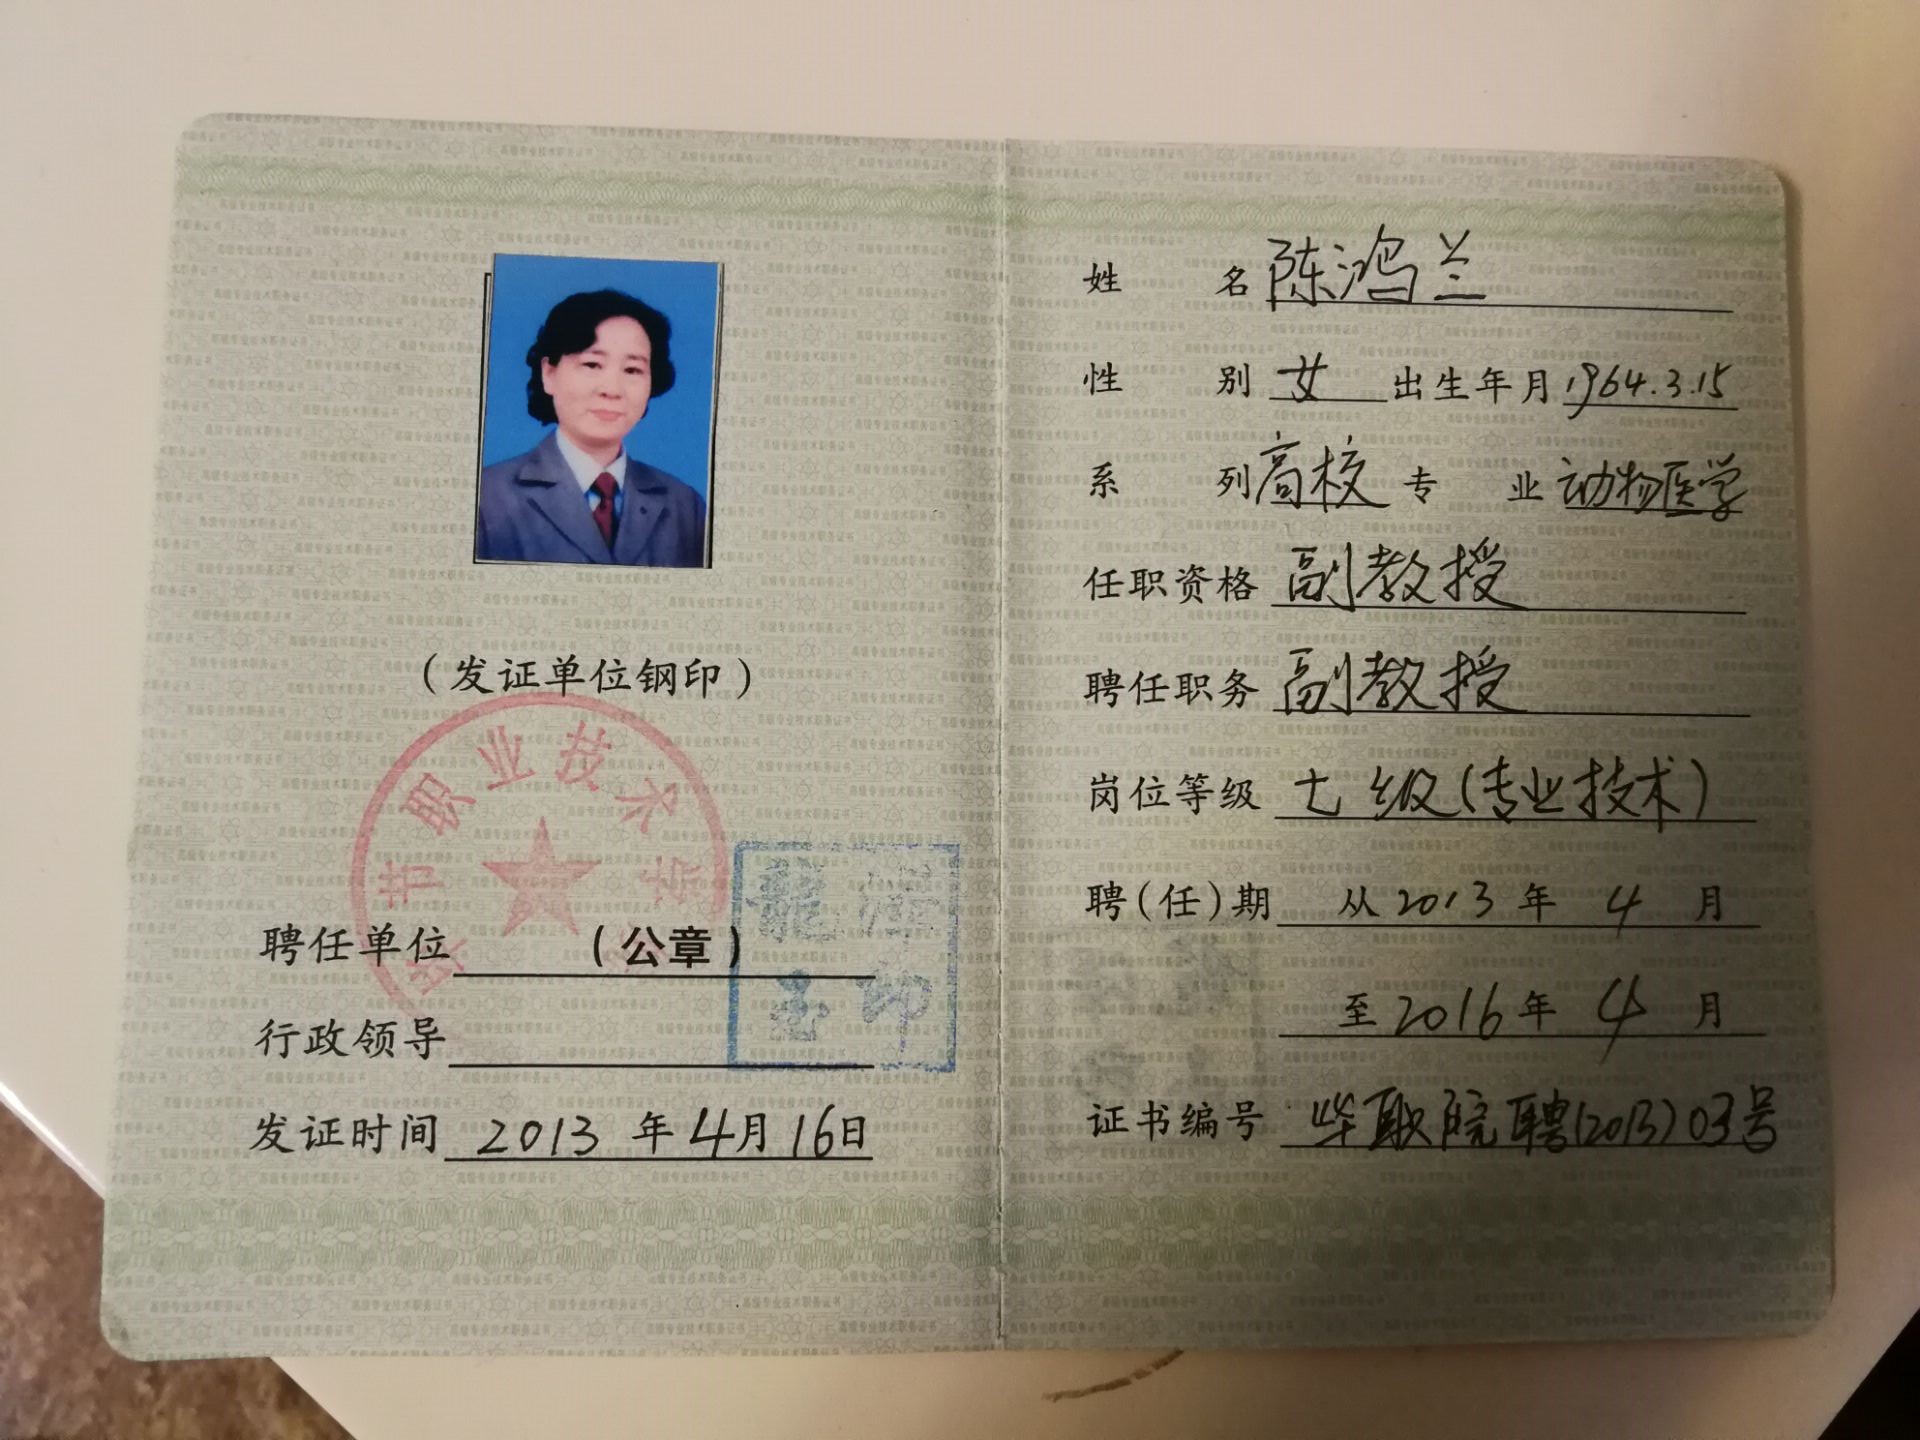 (发证单位钢印)
节职业技术学
聘任单位 (公章)
行政领导
发证时间 2013 年 4月 16日
姓 名 陈鸿兰
性 别 女 出生年月 1964.3.15
系 列 高校 专 业 动物医学
任职资格 副教授
聘任职务 副教授
岗位等级 七级(专业技术)
聘(任)期 从 2013 年 4 月
至 2016 年 4 月
证书编号 毕职院聘(2013)03号